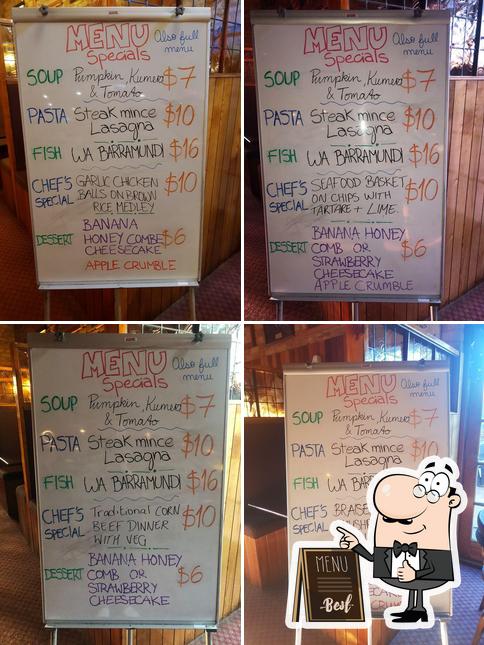 MENU Also full
Specials menu
SOUP Pumpkin, Kumera $7
& Tomato
PASTA Steak mince $10
Lasagna
FISH WA BARRAMUNDI $16
CHEF'S GARLIC CHICKEN $10
SPECIAL BALLS ON BROWN
RICE MEDLEY
BANANA
DESSERT HONEY COMBE $6
CHEESECAKE
APPLE CRUMBLE
MENU Also full
Specials menu
SOUP Pumpkin, Kumera $7
& Tomato
PASTA Steak mince $10
Lasagna
FISH WA BARRAMUNDI $16
CHEF'S SEAFOOD BASKET $10
SPECIAL ON CHIPS WITH
TARTARE + LIME
BANANA HONEY
DESSERT COMB OR $6
STRAWBERRY
CHEESECAKE
APPLE CRUMBLE
MENU Also full
Specials menu
SOUP Pumpkin, Kumera $7
& Tomato
PASTA Steak mince $10
Lasagna
FISH WA BARRAMUNDI $16
CHEF'S Traditional CORN $10
SPECIAL BEEF DINNER
WITH VEG
BANANA HONEY
DESSERT COMB OR $6
STRAWBERRY
CHEESECAKE
MENU Also full
Specials menu
SOUP Pumpkin, Kumera $7
& Tomato
PASTA Steak mince $10
Lasagna
FISH WA
CHEF'S
SPECIAL
MENU
Best